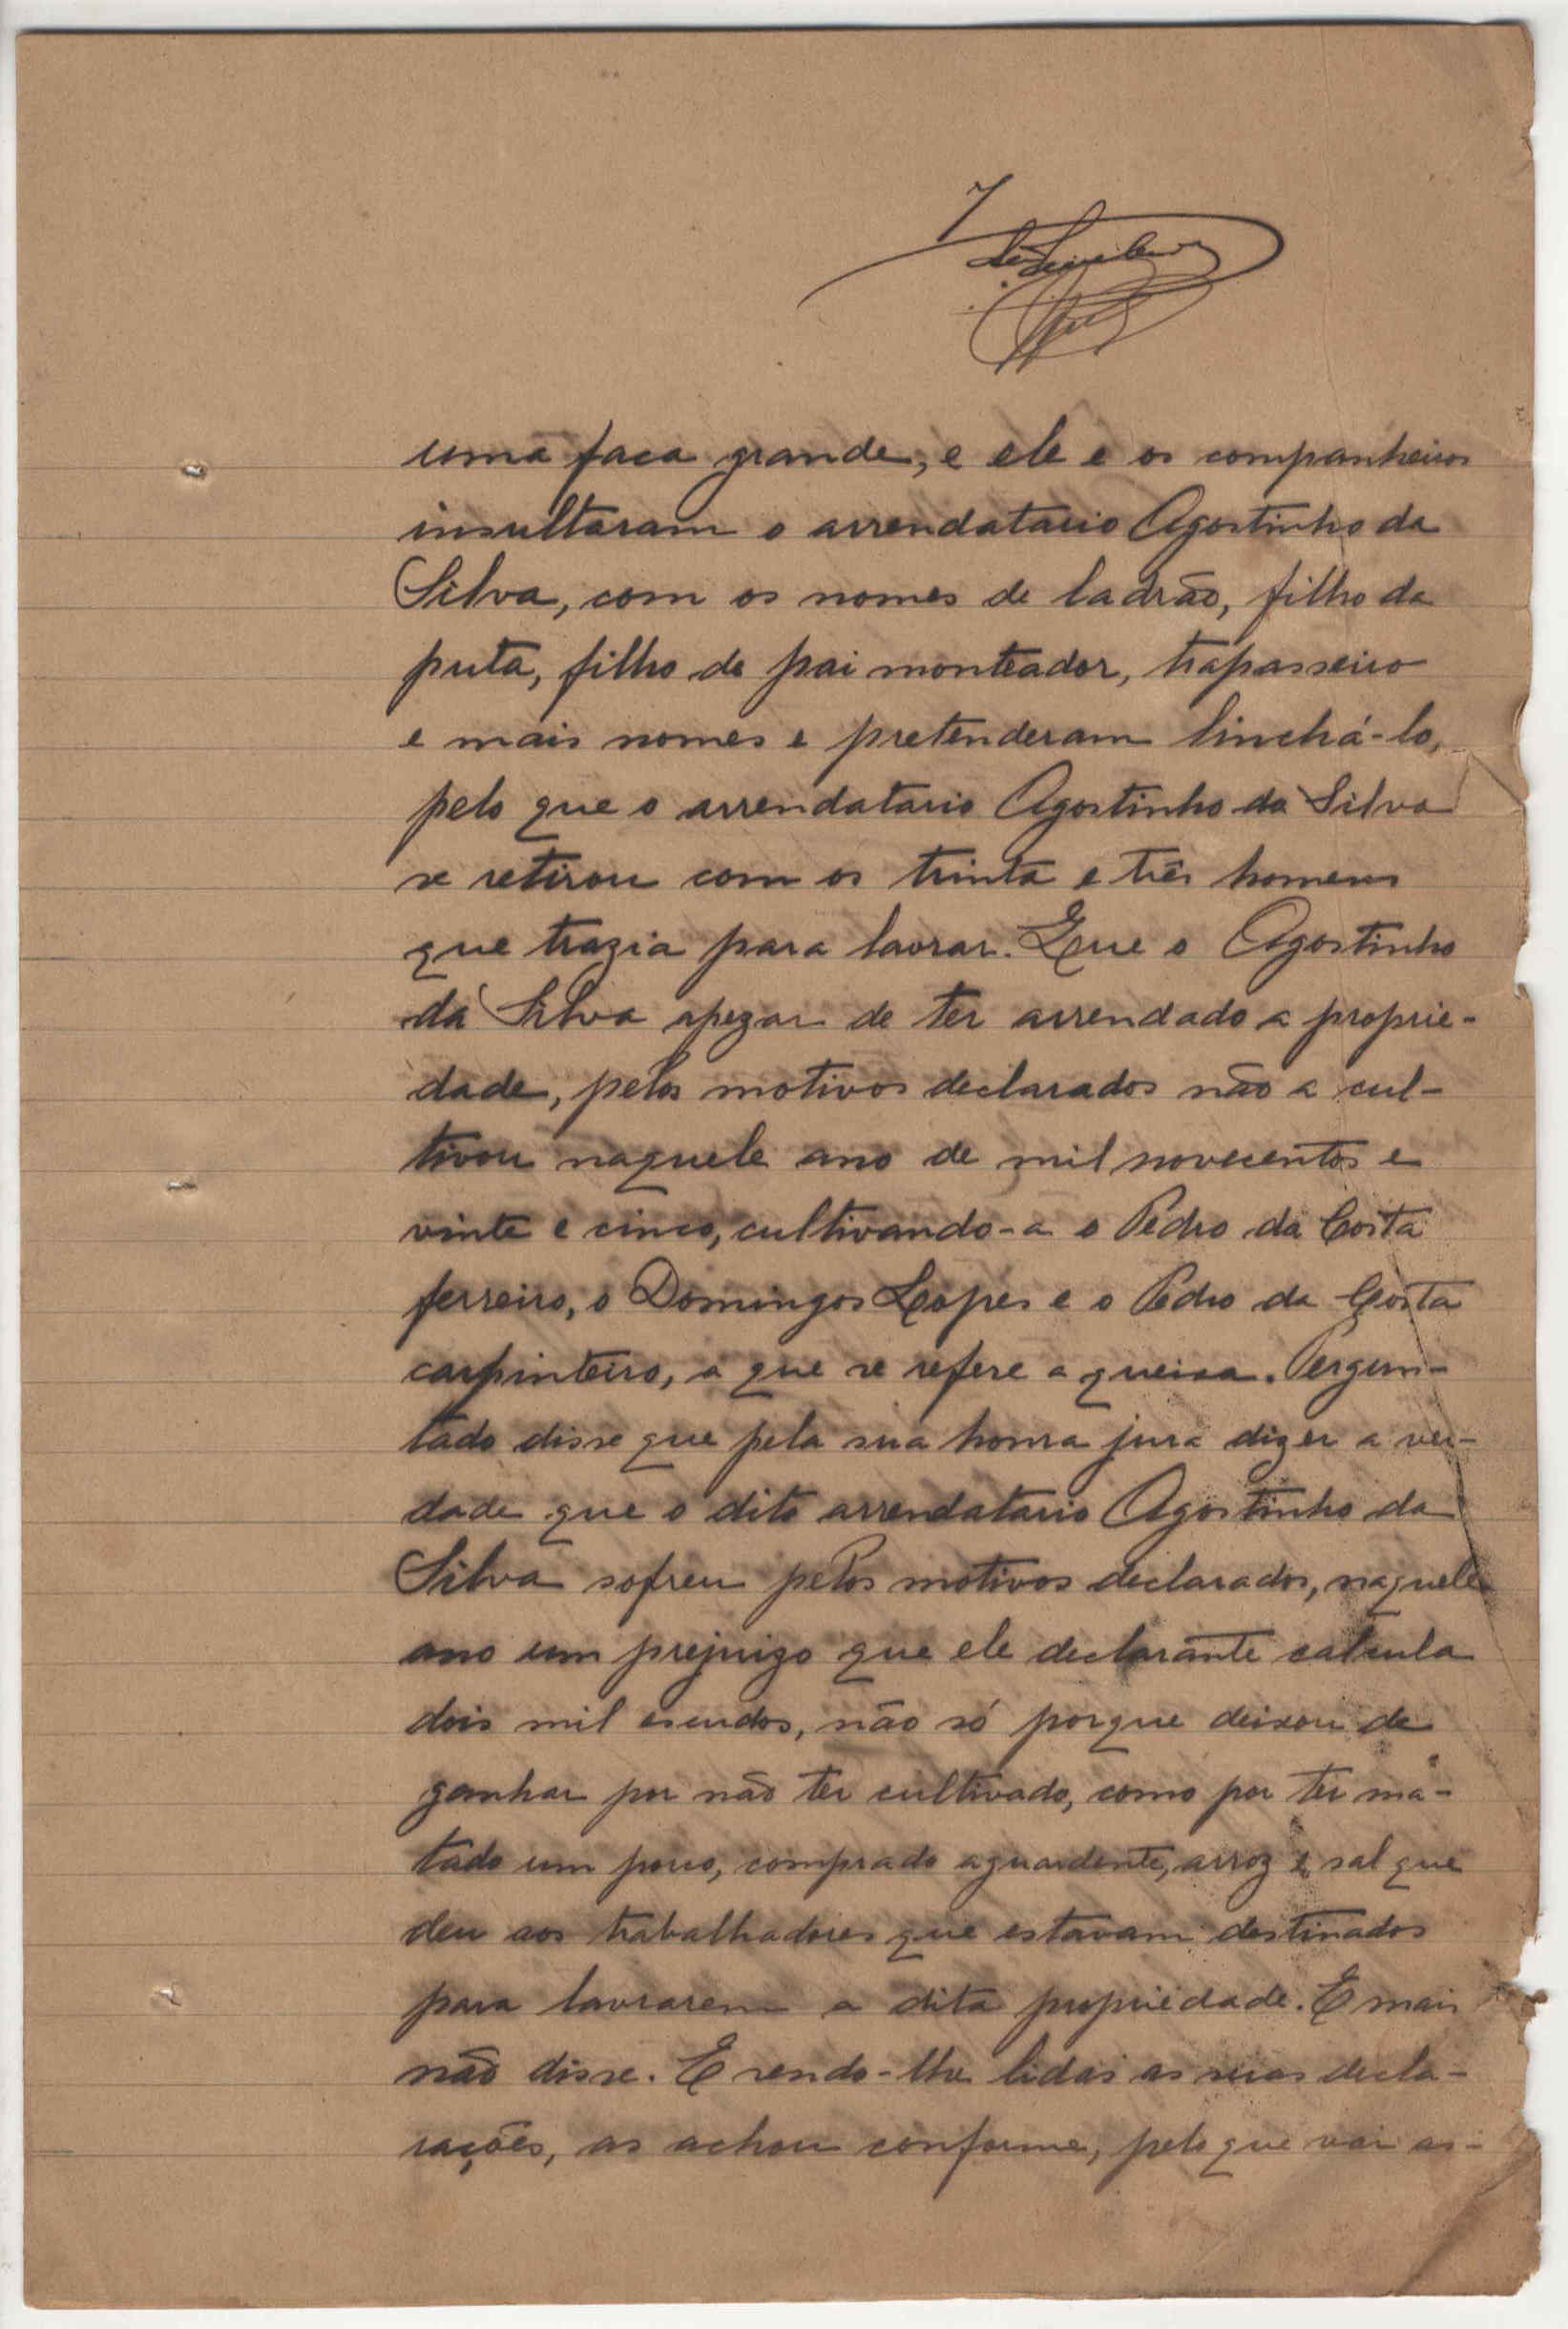 7
uma faca grande, e ele e os companheiros
insultaram o arrendatario Agostinho da
Silva, com os nomes de ladrão, filho da
puta, filho de pai monteador, trapasseiro
e mais nomes e pretenderam linchá-lo,
pelo que o arrendatario Agostinho da Silva
se retirou com os trinta e três homens
que trazia para lavrar. Que o Agostinho
da Silva apezar de ter arrendado a proprie-
dade, pelos motivos declarados não a cul-
tivou naquele ano de mil novecentos e
vinte e cinco, cultivando-a o Pedro da Costa
ferreiro, o Domingos Lopes e o Pedro da Costa
carpinteiro, a que se refere a queixa. Pergun-
tado disse que pela sua honra jura dizer a ver-
dade que o dito arrendatario Agostinho da
Silva sofreu pelos motivos declarados, naquele
ano um prejuizo que ele declarante calcula
dois mil escudos, não só porque deixou de
ganhar por não ter cultivado, como por ter ma-
tado um porco, comprado aguardente, arroz e sal que
deu aos trabalhadores que estavam destinados
para lavrarem a dita propriedade. E mais
não disse. E sendo-lhe lidas as suas decla-
rações, as achou conforme, pelo que vai as-